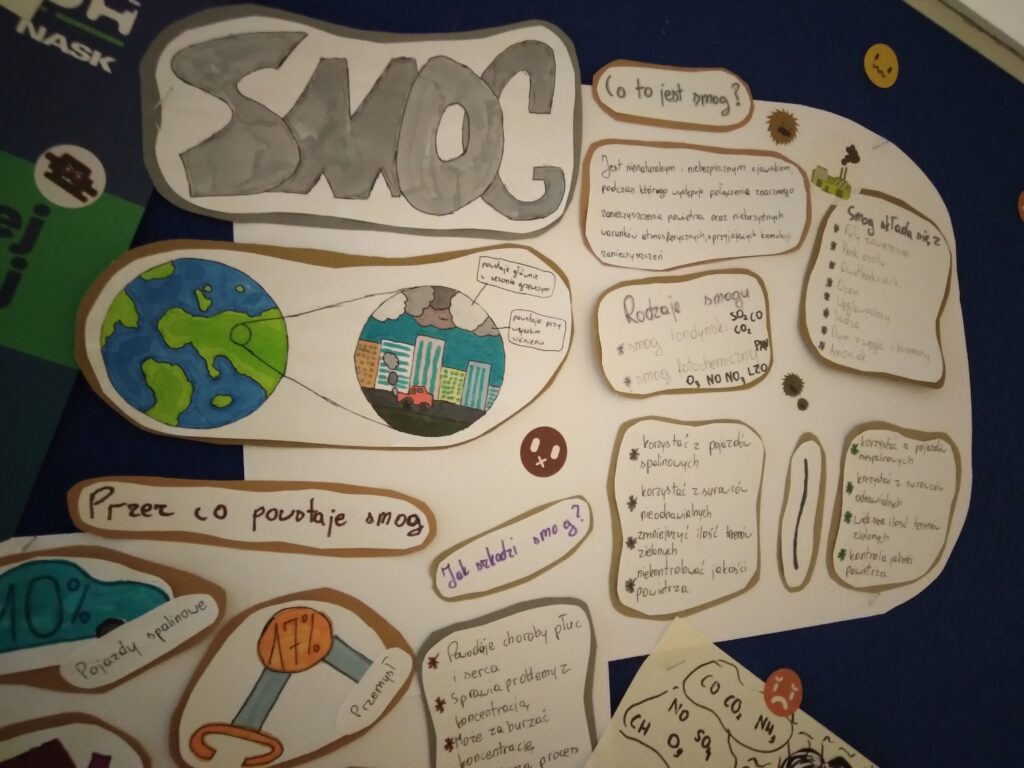 NASK
SMOG
Co to jest smog?
Jest nienaturalnym i niebezpiecznym zjawiskiem,
podczas którego występuje połączenie znacznego
zanieczyszczenia powietrza oraz niekorzystnych
warunków atmosferycznych, sprzyjających kumulacji
zanieczyszczeń
Smog składa się z
Pyły zawieszone
Tlenki azotu
Ozon
Węglowodory
Sadza
amoniak
powstaje głównie
w sezonie grzewczym
powstaje przy
wysokim
ciśnieniu
Rodzaje smogu
smog londyński SO2 CO
CO2
smog fotochemiczny PAN
O3 NO NO2 LZO
korzystać z pojazdów
spalinowych
korzystać z surowców
nieodnawialnych
zmniejszyć ilość terenów
zielonych
niekontrolować jakości
powietrza
korzystać z pojazdów
niespalinowych
korzystać z surowców
odnawialnych
większa ilość terenów
zielonych
kontrola jakości
powietrza
Przez co powstaje smog
Jak szkodzi smog?
10%
Pojazdy spalinowe
17%
Przemysł
Powoduje choroby płuc
i serca
Sprawia problemy z
koncentracją
Może zaburzać
koncentrację
proces
CO CO2 NH3
NO
CH O3 SO2